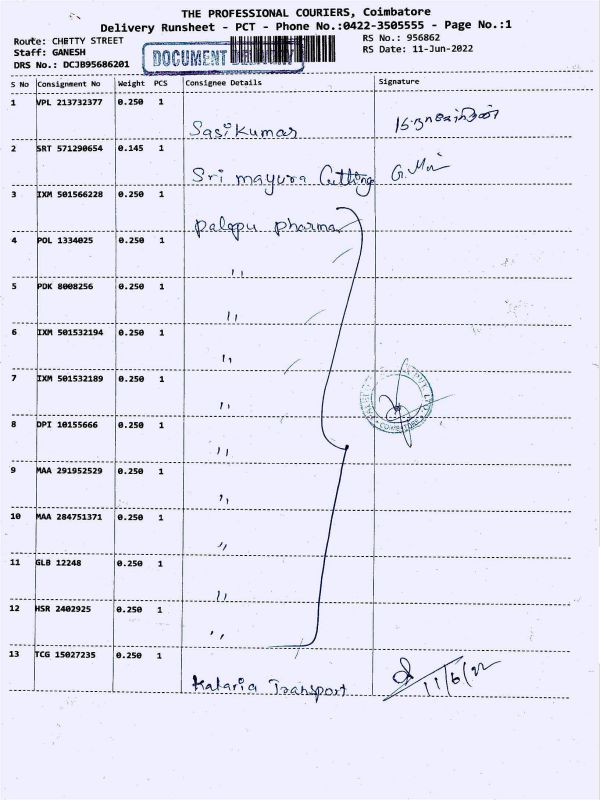 THE PROFESSIONAL COURIERS, Coimbatore
Delivery Runsheet - PCT - Phone No.:0422-3505555 - Page No.:1
Route: CHETTY STREET
RS No.: 956862
Staff: GANESH
DOCUMENT
RS Date: 11-Jun-2022
DRS No.: DCJB95686201
S No Consignment No Weight PCS Consignee Details Signature
1 VPL 213732377 0.250 1
Sasikumar
2 SRT 571290654 0.145 1
Sri mayura Cutting
3 IXM 501566228 0.250 1
palepu pharma
4 POL 1334025 0.250 1
,,
5 PDK 8008256 0.250 1
,,
6 IXM 501532194 0.250 1
,,
7 IXM 501532189 0.250 1
,,
8 DPI 10155666 0.250 1
,,
9 MAA 291952529 0.250 1
,,
10 MAA 284751371 0.250 1
,,
11 GLB 12248 0.250 1
,,
12 HSR 2402925 0.250 1
,,
13 TCG 15027235 0.250 1
Kataria Transport
11/6/22